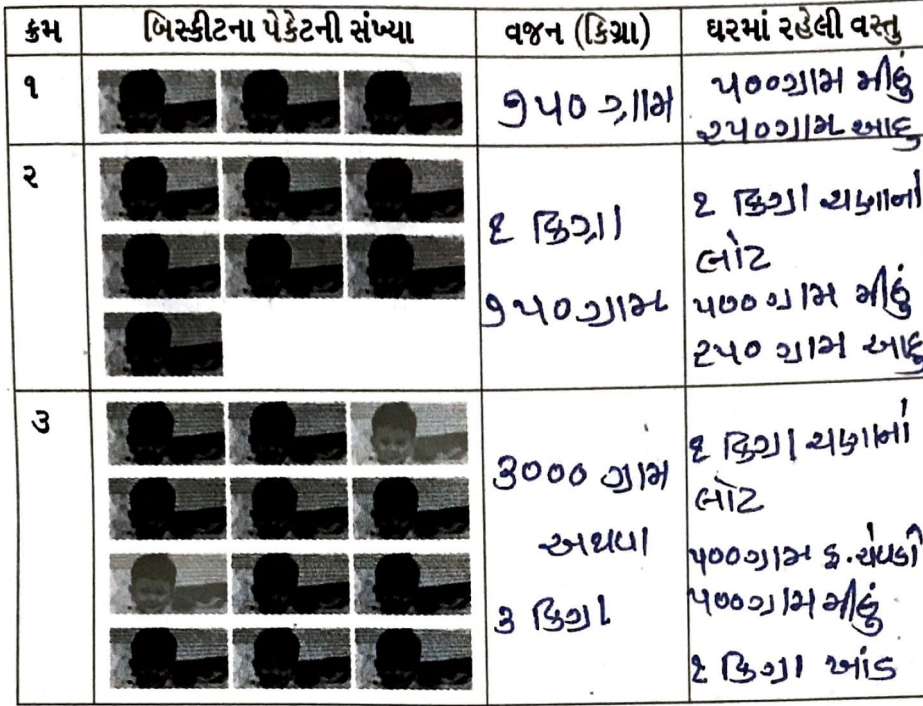 ક્રમ બિસ્કીટના પેકેટની સંખ્યા વજન (કિગ્રા) ઘરમાં રહેલી વસ્તુ
૧ ૭૫૦ ગ્રામ ૫૦૦ગ્રામ મીઠું
૨૫૦ગ્રામ આદુ
૨ ૧ કિગ્રા ૧ કિગ્રા ચણાનો
લોટ
૭૫૦ગ્રામ ૫૦૦ ગ્રામ મીઠું
૨૫૦ ગ્રામ આદુ
૩ ૩૦૦૦ ગ્રામ ૧ કિગ્રા ચણાનો
લોટ
અથવા ૫૦૦ગ્રામ
૩ કિગ્રા ૫૦૦ગ્રામ મીઠું
૧ કિગ્રા ખાંડ